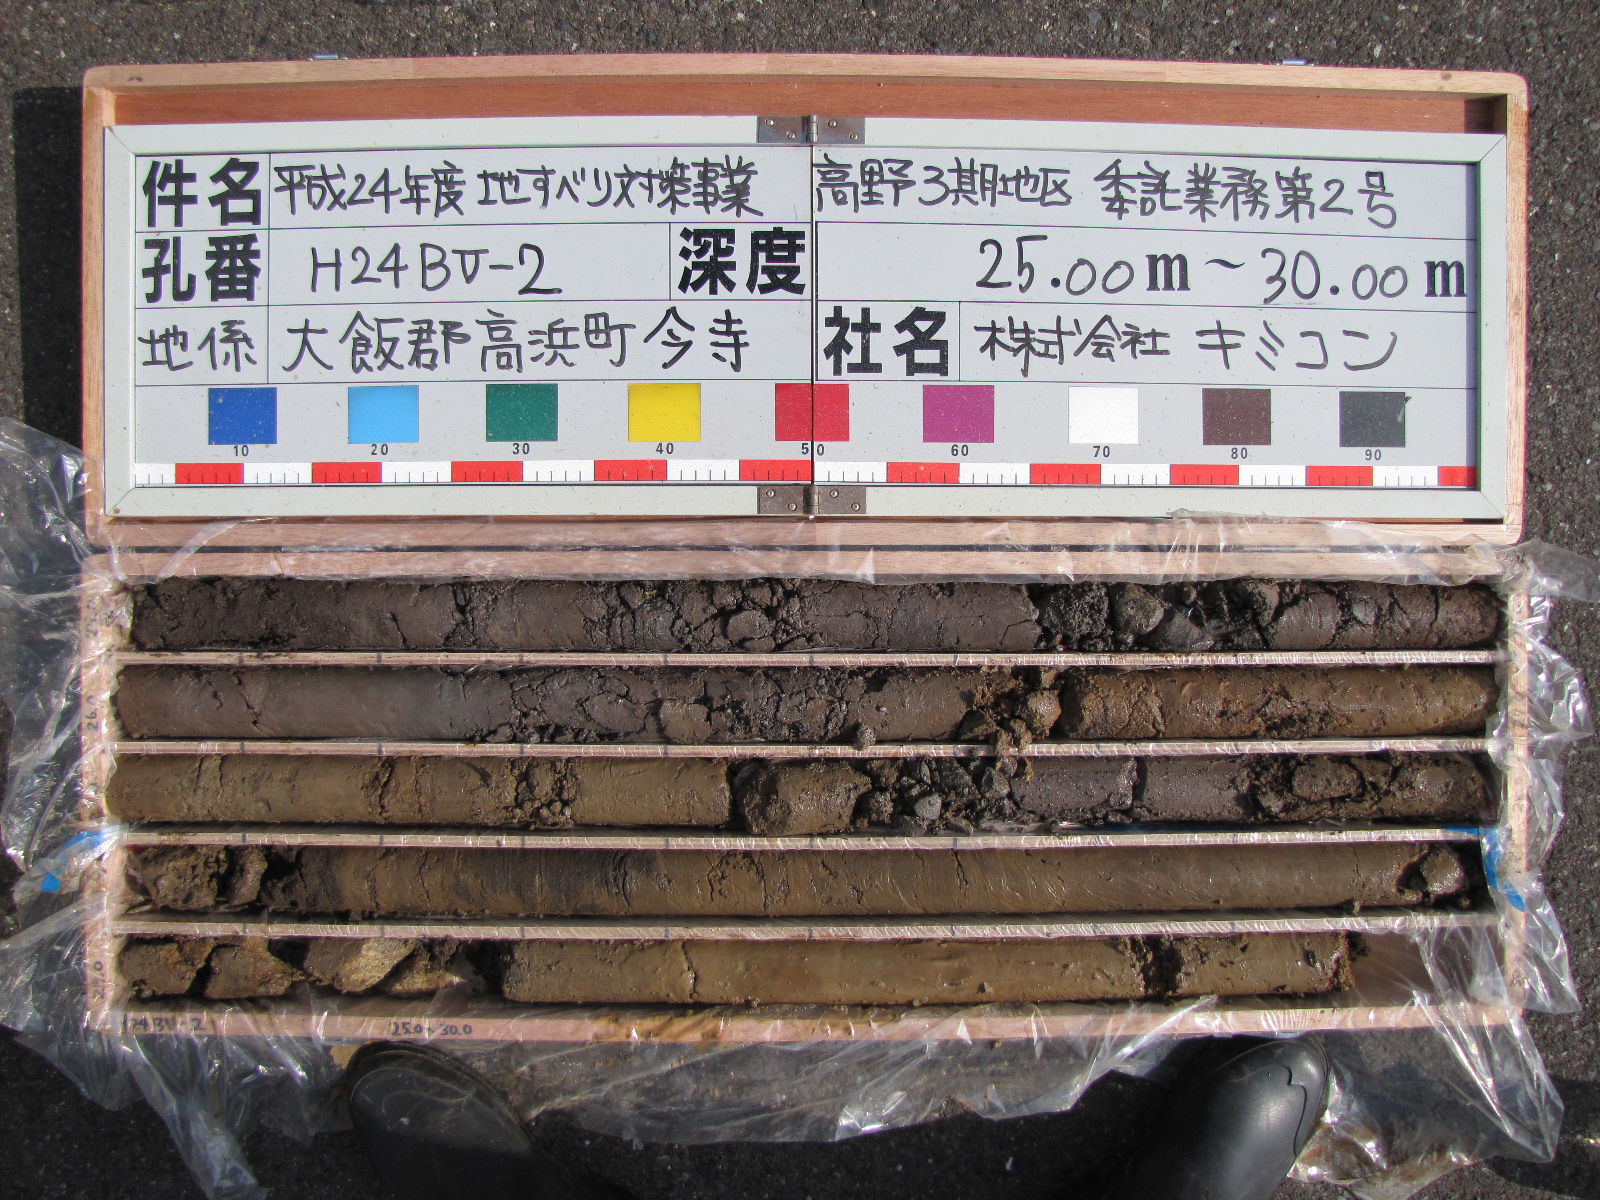 件名 平成24年度 地すべり対策事業 高野3期地区 委託業務第2号
孔番 H24BV-2 深度 25.00m～30.00m
地係 大飯郡高浜町今寺 社名 株式会社 キミコン
10 20 30 40 50 60 70 80 90
26.0
H24BV-2 25.0~30.0